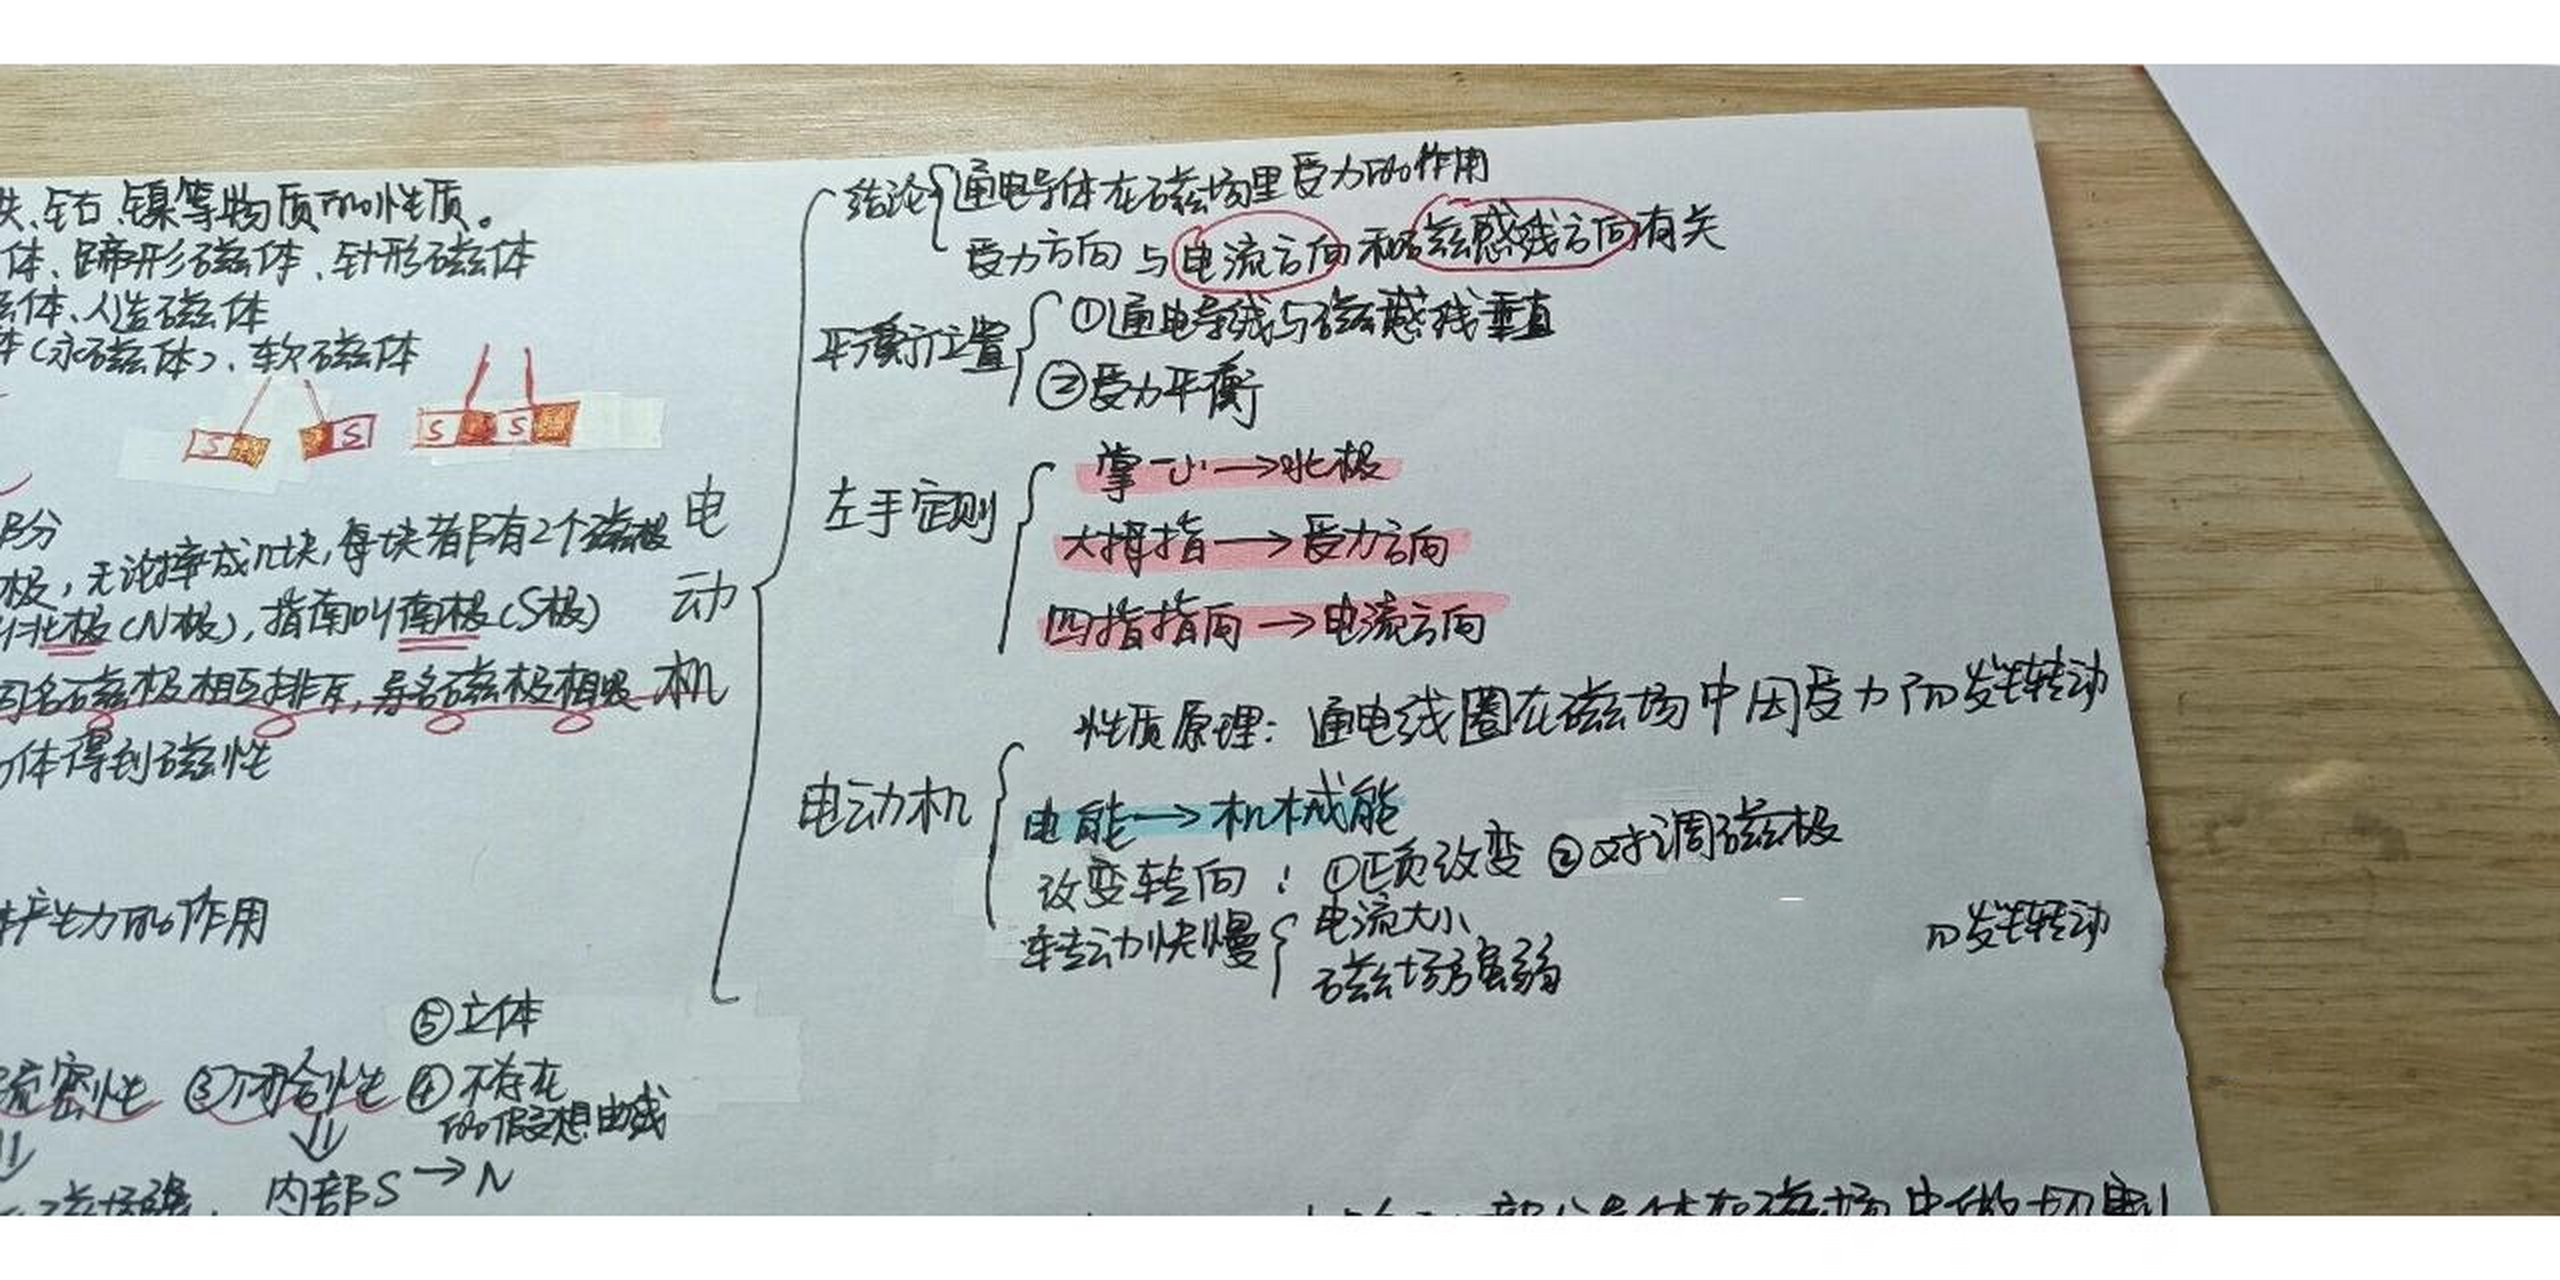 铁、钴、镍等物质的性质。
体、蹄形磁体、针形磁体
磁体、人造磁体
体(永磁体)、软磁体
S S S S
部分
极，无论摔成几块，每块都有2个磁极
叫北极(N极)，指南叫南极(S极)
同名磁极相互排斥，异名磁极相吸
体得到磁性
产生力的作用
⑤立体
疏密性 ③闭合性 ④不存在
的假想曲线
磁场强. 内部S→N
电动机
结论 通电导体在磁场里受力的作用
受力方向与电流方向和磁感线方向有关
平衡位置 ①通电导线与磁感线垂直
②受力平衡
左手定则
掌心→北极
大拇指→受力方向
四指指向→电流方向
电动机
性质原理：通电线圈在磁场中因受力而发生转动
电能→机械能
改变转向：①正负改变 ②对调磁极
转动快慢 电流大小
磁场强弱
而发生转动
部分导体在磁场中做切割